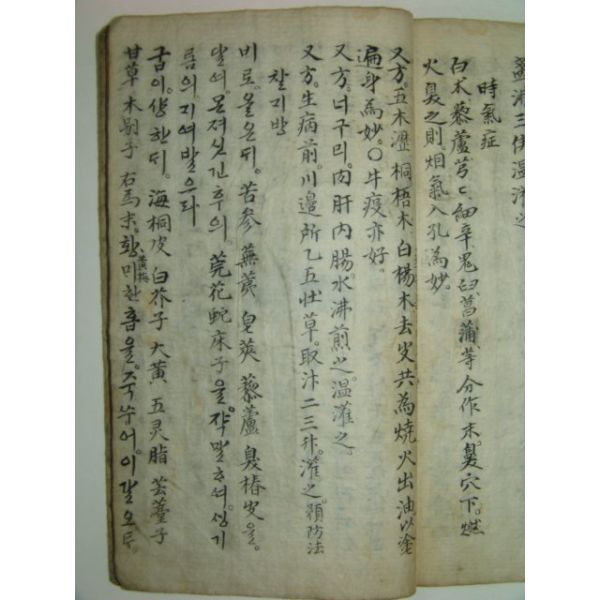 時氣症
白朮 藜蘆 芎〻 細辛 鬼臼 菖蒲 等分作末 臭穴下 燃
火臭之則 烟氣入孔 爲妙
又方 五木瀝 桐梧木 白楊木 去皮 共爲燒火出油 以塗
遍身爲妙 〇牛疫亦好
又方 너구리 肉肝內腸 水沸煎之 温灌之
又方 生病前 川邊所乙五壯草 取汁二三升 灌之 預防法
찰지방
비로올온듸 苦參 蕪荑 皂莢 藜蘆 臭椿皮을
달여 몬져싯긴후의 莞花 蛇床子을 쟉말하여 生기
름의지여발으라
굽이 상한듸 海桐皮 白芥子 大黃 五灵脂 芸薹子
甘草 木剔子 右爲末 황미 黃梅 한홉을 죽쑤어